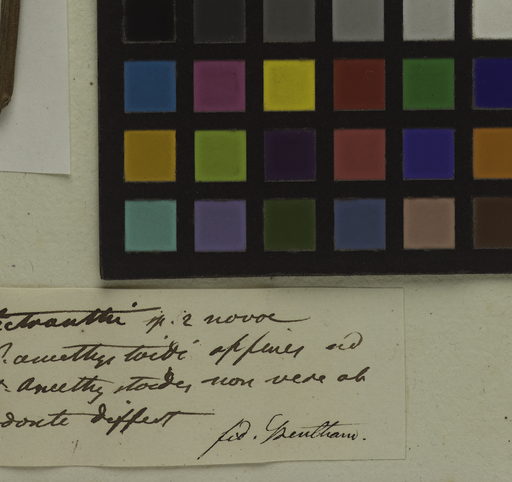 ctranthi sp. 2 novae
P. amethystoidi affines sed
P. Amethystoides non vere ab
donte differt
fid. Bentham.